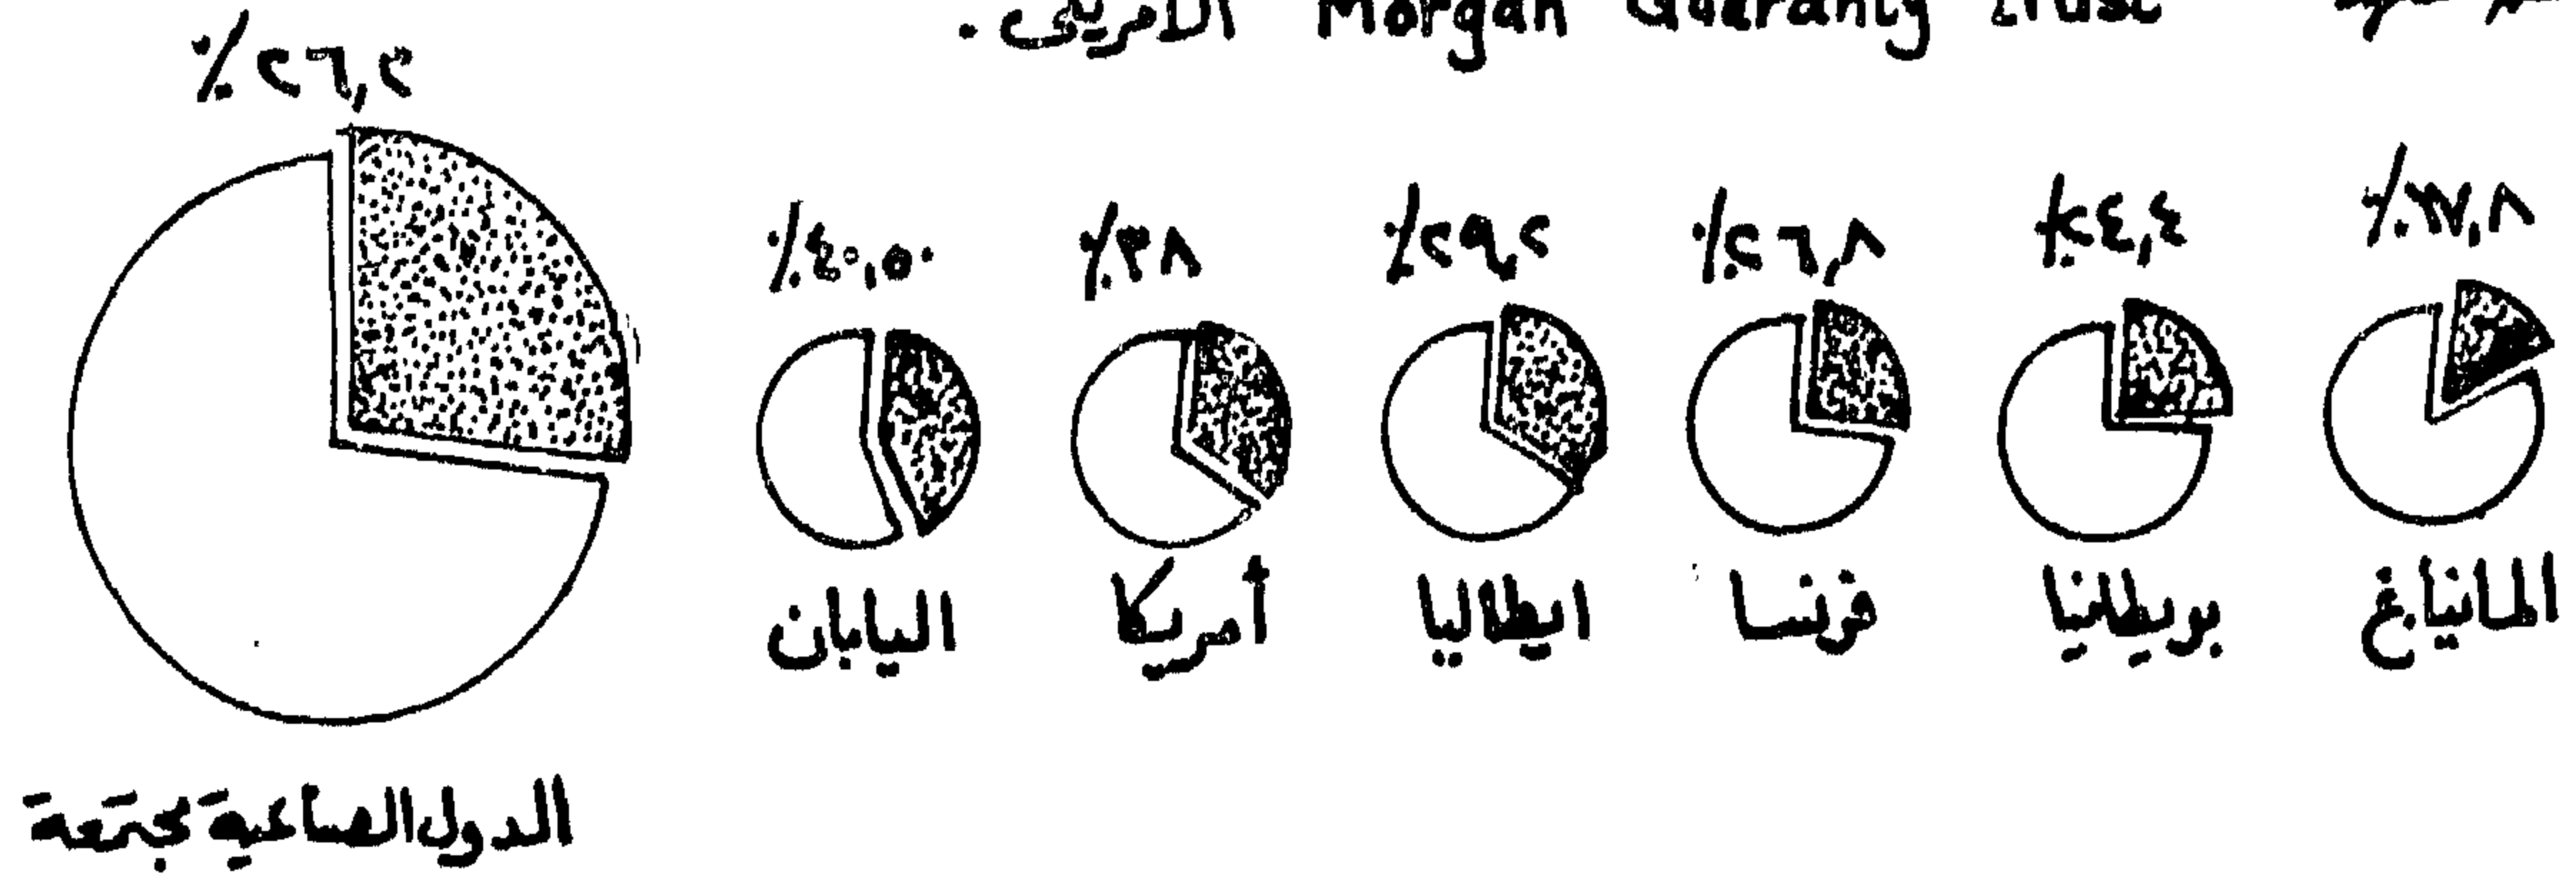 Morgan Guaranty Trust الأمريكى .
٢٦,٢٪
٢٤,٤٪ ٢٦,٨٪ ٢٩,٢٪ ٣٨٪ ٤٠,٥٠٪
المانيا.غ بريطانيا فرنسا ايطاليا أمريكا اليابان
الدول الصناعية مجتمعة